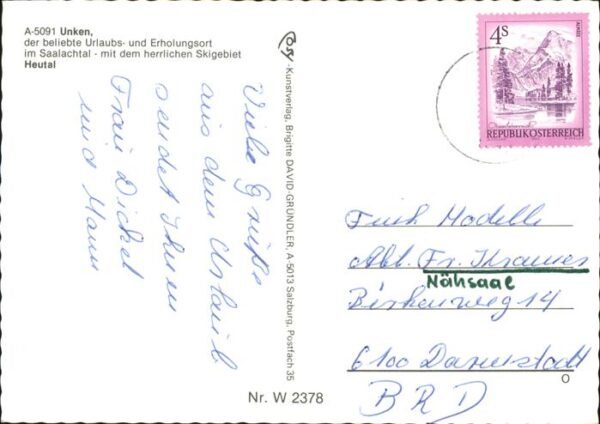 A-5091 Unken,
der beliebte Urlaubs- und Erholungsort
im Saalachtal - mit dem herrlichen Skigebiet
Heutal
Viele Grüße
aus dem Urlaub
sendet Ihnen
Frau Dickel
und Mann
-Kunstverlag, Brigitte DAVID-GRÜNDLER, A-5013 Salzburg, Postfach 35
Nr. W 2378
4S
ALMSEE
REPUBLIK ÖSTERREICH
Fink Modelle
Abt. Fr. Kramer
Nähsaal
Birkenweg 14
6100 Darmstadt
BRD